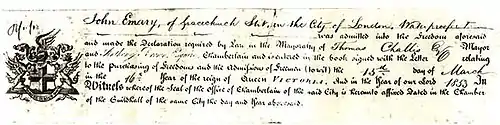 John Emery, of Gracechurch Street, in the City of London, Waterproofer
was admitted into the Freedom aforesaid
and made the Declaration required by Law in the Mayoralty of Thomas Challis Mayor
and Chamberlain and is entered in the book signed with the Letter relating
to the Purchasing of Freedoms and the Admissions of Freemen (to wit) the 15th day of March
in the 16th Year of the reign of Queen VICTORIA And in the Year of our Lord 1853 In
Witness whereof the Seal of the Office of Chamberlain of the said City is hereunto affixed Dated in the Chamber
of the Guildhall of the same City the day and Year abovesaid.